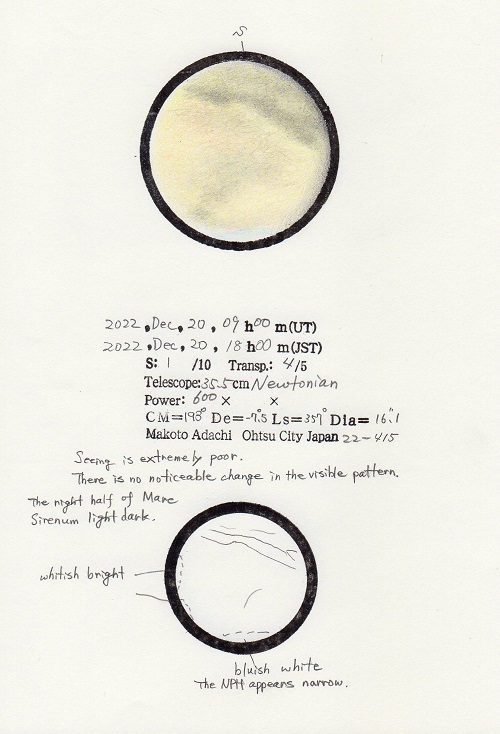 S
2022, Dec, 20, 09 h 00 m (UT)
2022, Dec, 20, 18 h 00 m (JST)
S: 1 /10 Transp.: 4/5
Telescope: 35.5 cm Newtonian
Power: 600 × ×
CM=193° De=-7.°5 Ls=357° Dia= 16."1
Makoto Adachi Ohtsu City Japan 22-415
Seeing is extremely poor.
There is no noticeable change in the visible pattern.
The night half of Mare
Sirenum light dark.
whitish bright
bluish white
The NPH appears narrow.